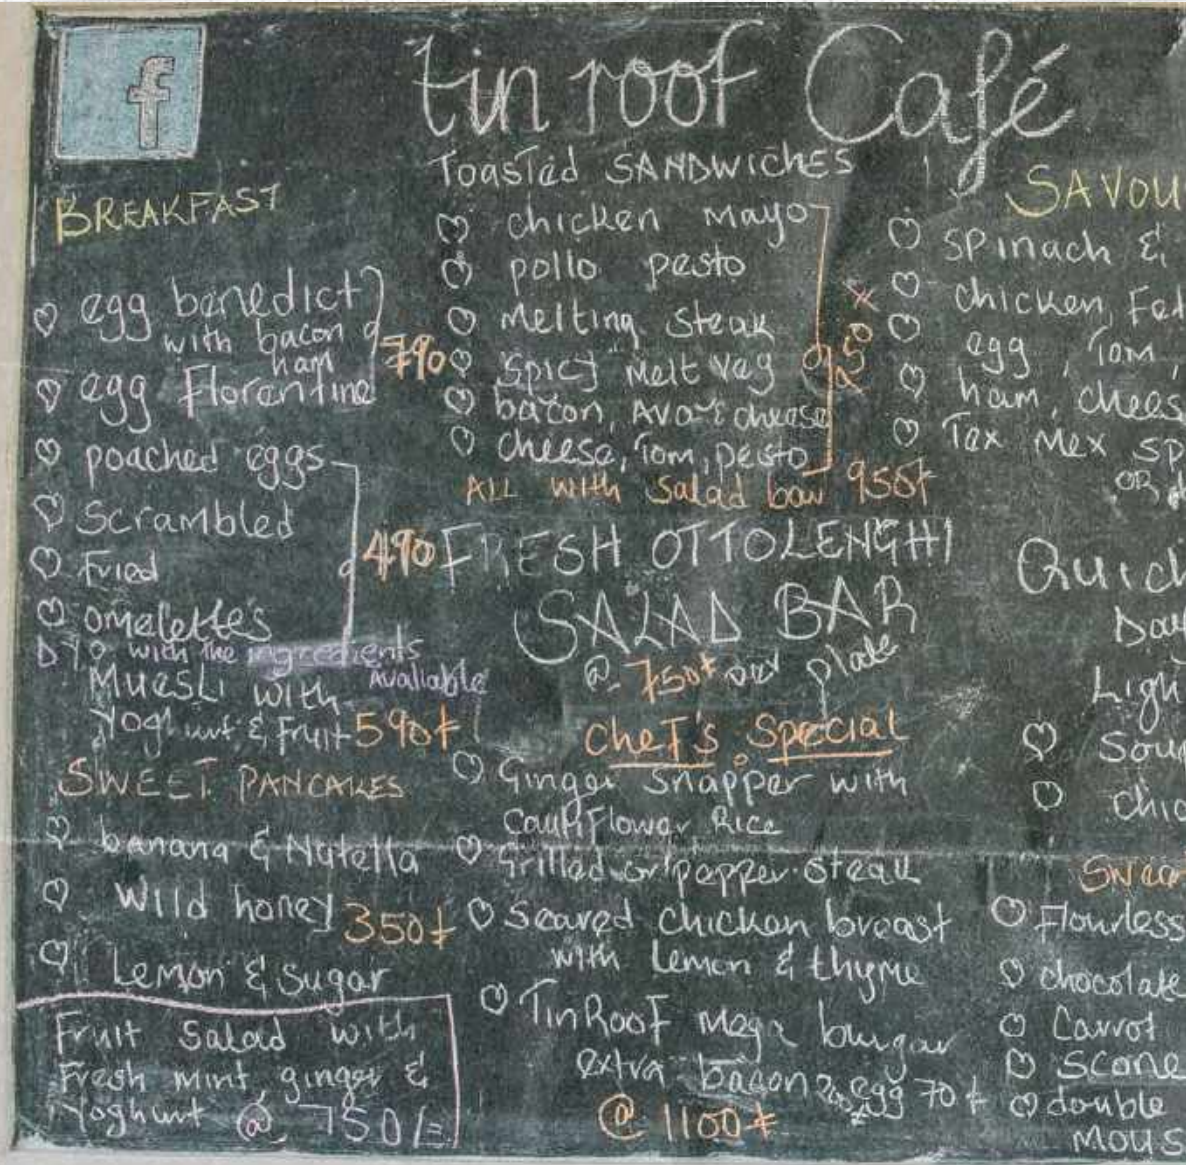 f
tin roof Café
BREAKFAST
egg benedict
with bacon
ham
egg Florentine
790
poached eggs
Scrambled
Fried
omelettes
490
with the ingredients
available
Muesli with
Yoghurt & Fruit 590
SWEET PANCAKES
banana & Nutella
Wild honey
350
Lemon & Sugar
Fruit Salad with
Fresh mint, ginger &
Yoghurt @ 750/=
Toasted SANDWICHES
chicken mayo
pollo pesto
Melting steak
Spicy Melt Veg
bacon, Avo & cheese
cheese, Tom, pesto
ALL with salad 950
FRESH OTTOLENGHI
SALAD BAR
@ 750 plate
Chef's Special
Ginger Snapper with
Cauliflower Rice
Grilled pepper steak
Seared chicken breast
with Lemon & thyme
TinRoof Mega burger
extra bacon egg 70
@ 1100
SAVOU
Spinach &
chicken, Fet
egg, Tom,
ham, chees
Tex Mex Sp
OR
Quich
Day
Ligh
Sou
chic
Swee
Flourless
chocolate
Carrot
Scone
double
mous